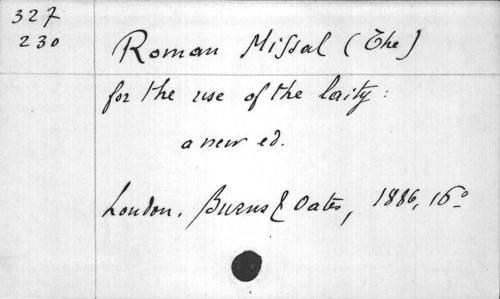 327
230
Roman Missal (The)
for the use of the laity:
a new ed.
London, Burns & Oates, 1886, 16º